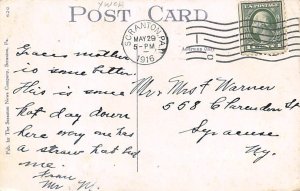 YWCA
POST CARD
SCRANTON, PA.
MAY 29
5-PM
1916
Grace's mother
is some better.
This is some
hot day down
here way one has
a straw hat but
me.
From
Mr. W.
Mr. Mrs F Warner
558 Clarendon St
Syracuse
Ny.
Pub. by The Scranton News Company, Scranton, Pa.